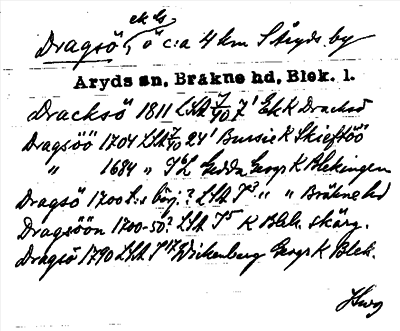 ek ls
Dragsö, ö c:a 4 km S Aryds by
Aryds sn, Bräkne hd, Blek. l.
Dracksö 1811 LSA 7/40 7' Ek K Dracksö
Dragsöö 1704 LSA 7/40 24' Bussie K Skieftöö
" 1684 " Gedda Geogr K Blekingen
Dragsö 1700 t.s börj.? LSA S3 " " Bräkne hd
Dragsöön 1700-50? LSA S5 K Blek. skärg.
Dragsö 1790 LSA S17 Wickenberg Geogr K Blek.